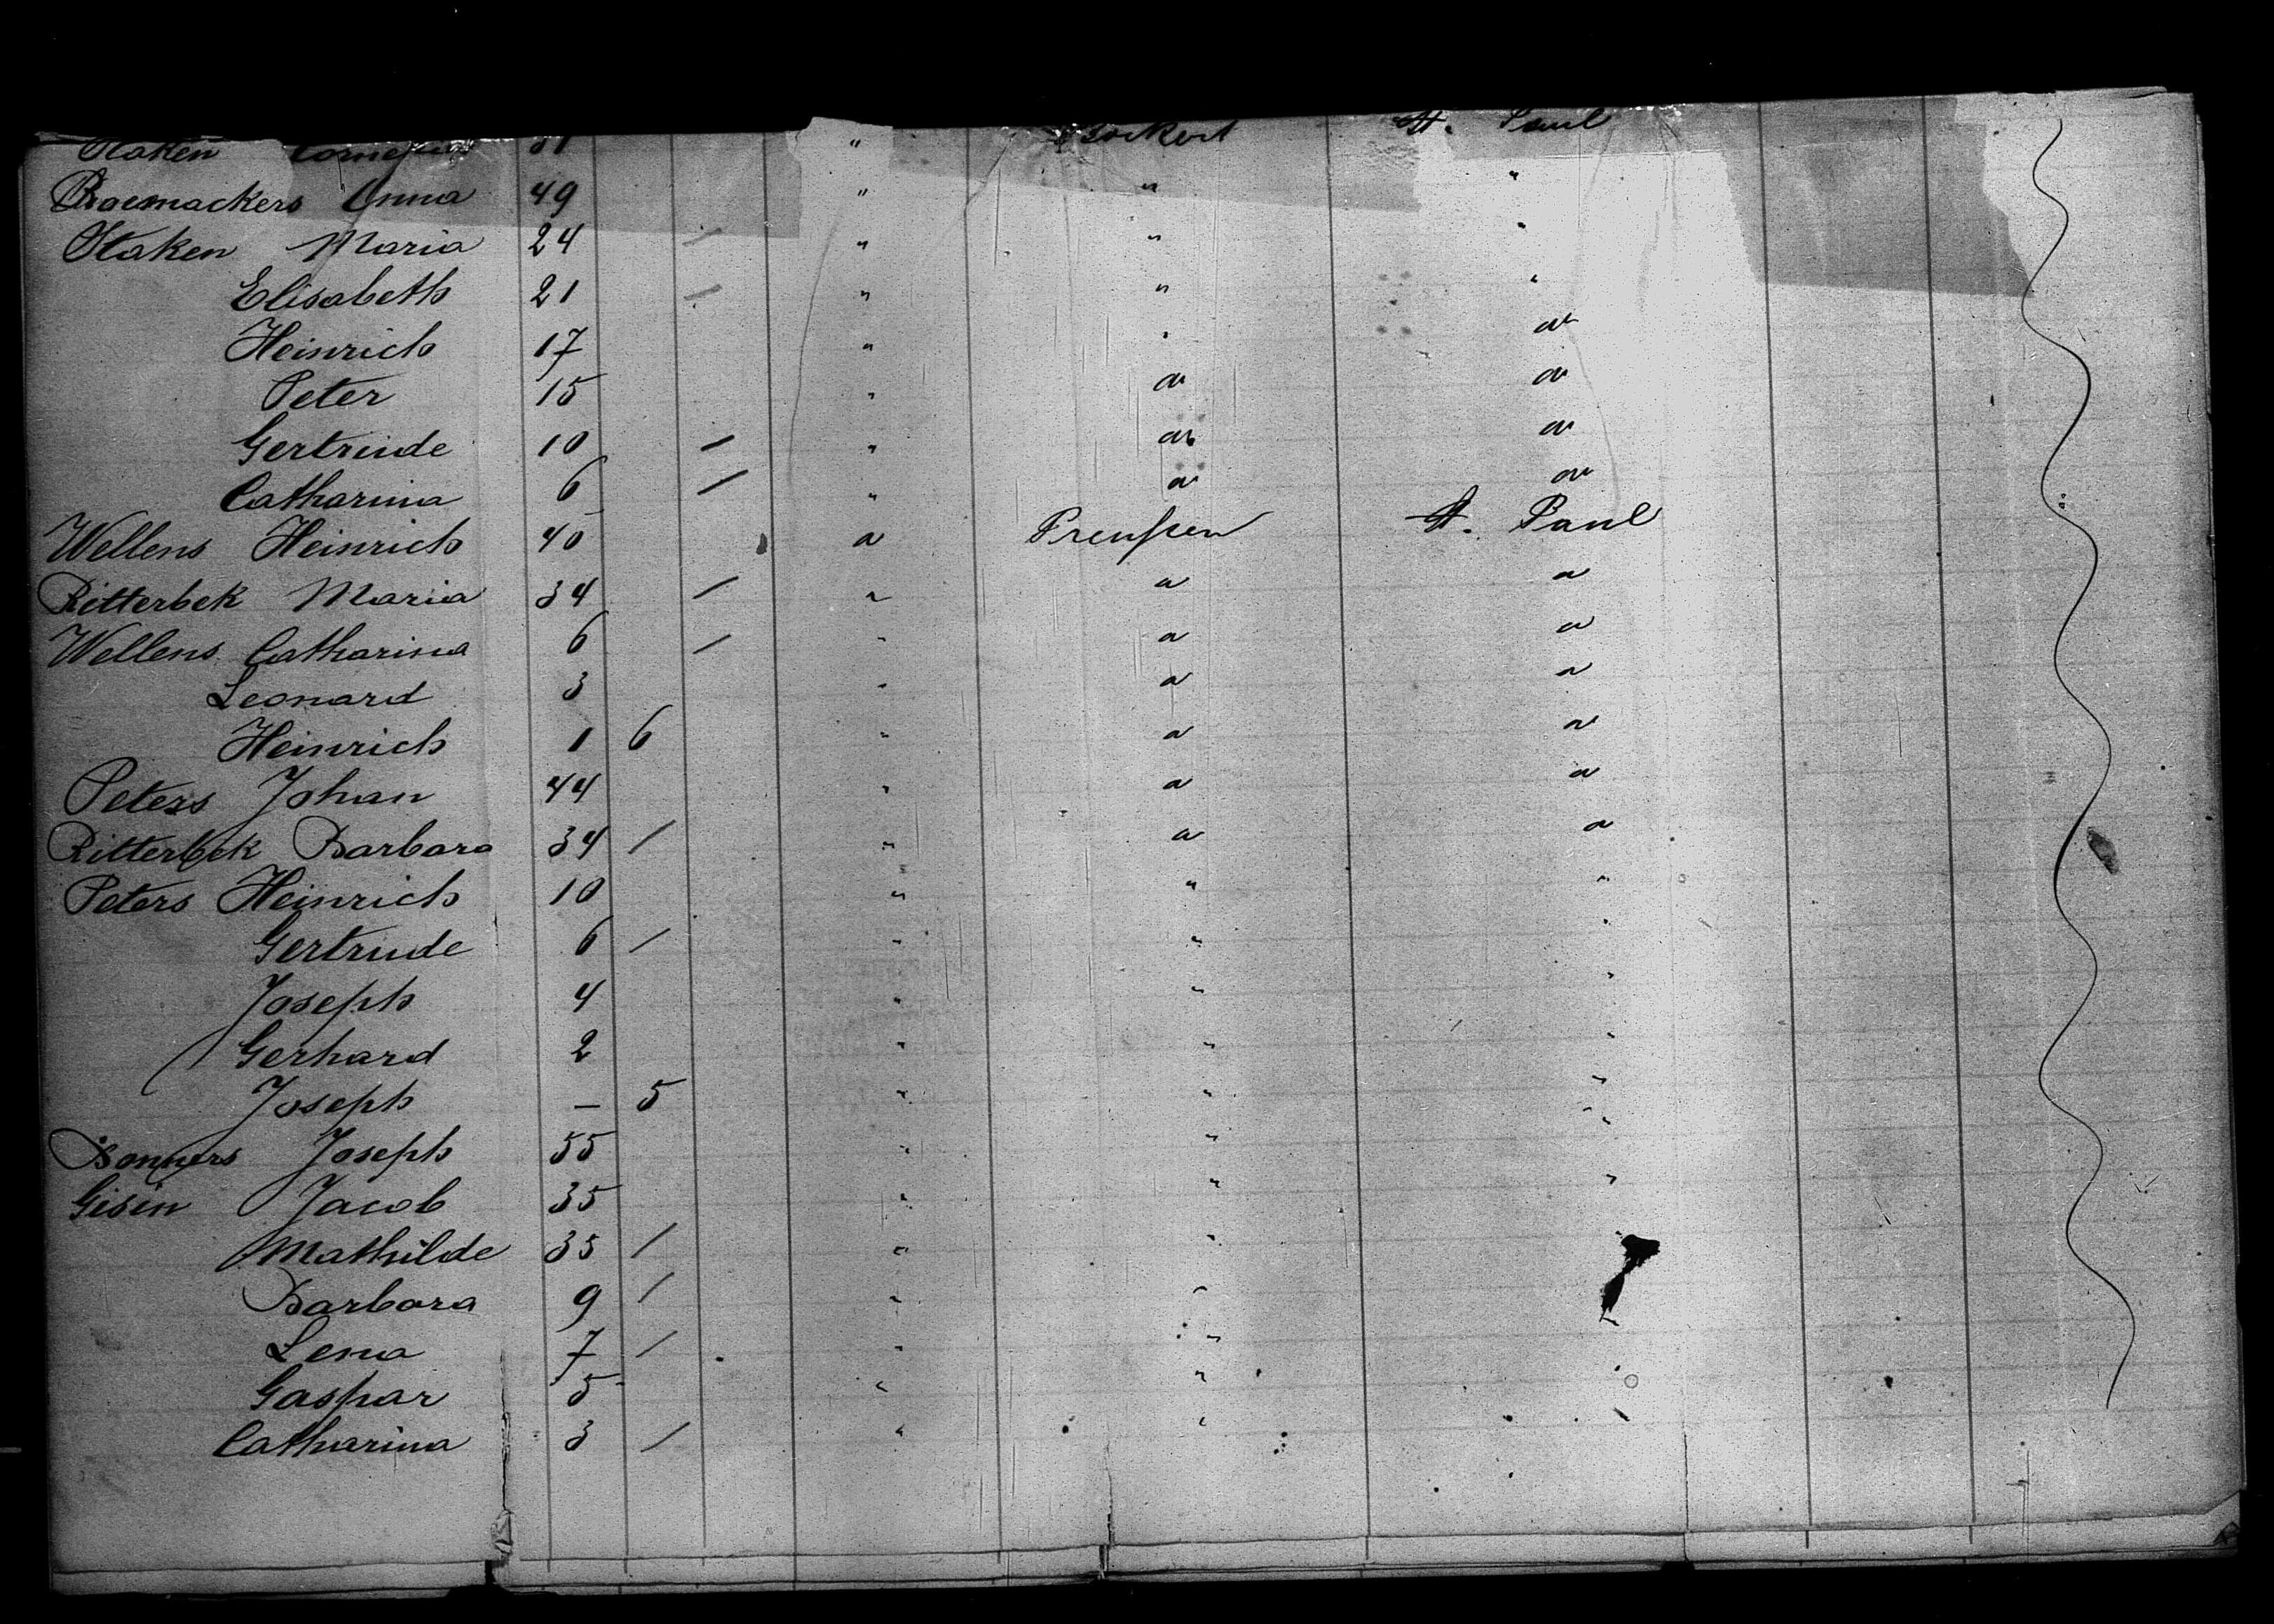 Staken 51 " St. Paul
Anna 49 " " "
Staken Maria 24 / " " "
Elisabeth 21 / " " "
Heinrich 17 " " "
Peter 15 " " "
Gertrude 10 / " " "
Catharina 6 / " " "
Wellens Heinrich 40 " Preußen St. Paul
Ritterbek Maria 34 / " " "
Wellens Catharina 6 / " " "
Leonard 3 " " "
Heinrich 1 6 " " "
Peters Johan 44 " " "
Ritterbek Barbara 34 / " " "
Peters Heinrich 10 " " "
Gertrude 6 / " " "
Joseph 4 " " "
Gerhard 2 " " "
Joseph — 5 " " "
Bonners Joseph 55 " " "
Gisin Jacob 35 " " "
Mathilde 35 / " "
Barbara 9 / " "
Lena 7 / " " "
Gaspar 5 " " "
Catharina 3 / " "